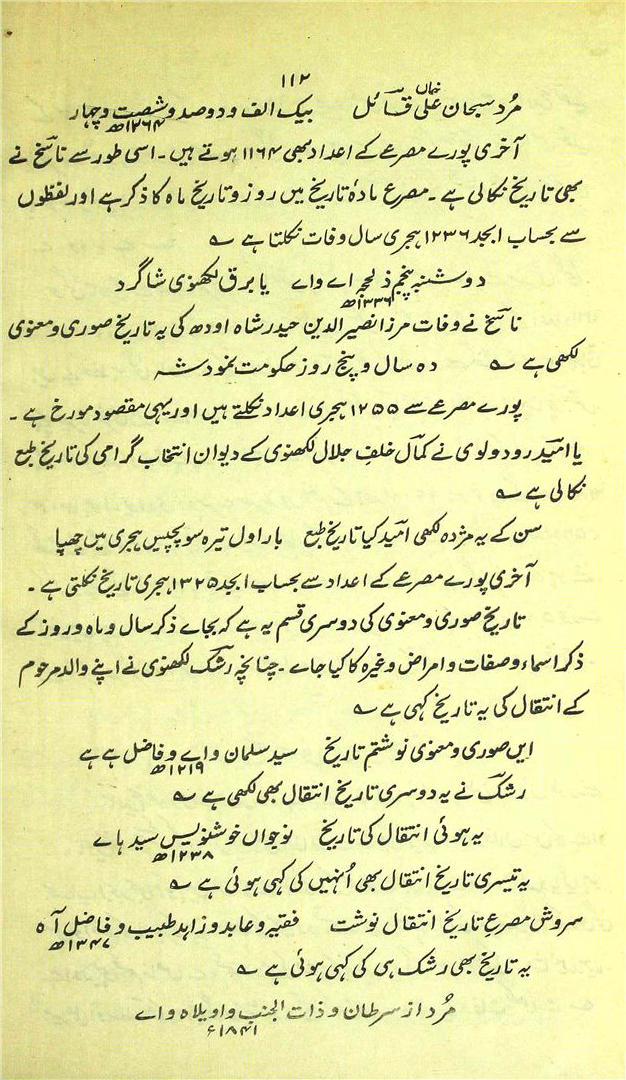 ۱۱۲
مُرد سبحان علی خاں قسائل بیک الف و دو صد و شصت و چہار
۱۲۶۴ھ
آخری پورے مصرعے کے اعداد بھی ۱۱۶۴ ہوتے ہیں۔ اسی طور سے ناسخ نے
بھی تاریخ نکالی ہے۔ مصرع مادۂ تاریخ میں روز و تاریخ ماہ کا ذکر ہے اور لفظوں
سے بحساب ابجد ۱۲۳۶ ہجری سال وفات نکلتا ہے ؎
دو شنبہ پنجم ذلحجہ اے واے یا برق لکھنوی شاگرد
۱۳۳۶ھ
ناسخ نے وفات مرزا نصیر الدین حیدر شاہ اودھ کی یہ تاریخ صوری و معنوی
لکھی ہے ؎ دہ سال و پنج روز حکومت نمود شہ
پورے مصرعے سے ۱۲۵۵ ہجری اعداد نکلتے ہیں اور یہی مقصود مورخ ہے۔
یا امید رودولوی نے کمال خلف جلال لکھنوی کے دیوان انتخاب گرامی کی تاریخ طبع
نکالی ہے ؎
سن کے یہ مژدہ لکھی امید کیا تاریخ طبع بار اول تیرہ سو پچیس ہجری میں چھپا
آخری پورے مصرعے کے اعداد سے بحساب ابجد ۱۳۲۵ ہجری تاریخ نکلتی ہے۔
تاریخ صوری و معنوی کی دوسری قسم یہ ہے کہ بجاے ذکر سال و ماہ و روز کے
ذکر اسماء و صفات و امراض وغیرہ کا کیا جاے۔ چنانچہ رشک لکھنوی نے اپنے والد مرحوم
کے انتقال کی یہ تاریخ کہی ہے ؎
ایں صوری و معنوی نوشتم تاریخ سید سلمان واے و فاضل ہے ہے
۱۲۱۹ھ
رشک نے یہ دوسری تاریخ انتقال بھی لکھی ہے ؎
یہ ہوئی انتقال کی تاریخ نوجواں خوشنویس سید ہاے
۱۲۳۸ھ
یہ تیسری تاریخ انتقال بھی اُنہیں کی کہی ہوئی ہے ؎
سروش مصرع تاریخ انتقال نوشت فقیہ و عابد و زاہد طبیب و فاضل آہ
۱۳۴۷ھ
یہ تاریخ بھی رشک ہی کی کہی ہوئی ہے ؎
مُرد از سرطان و ذات الجنب واویلاہ واے
۱۸۴۱ء